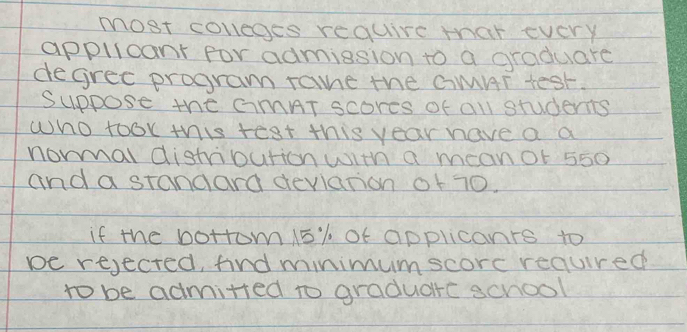 most colleges require that every
applicant for admission to a graduate
degree program take the GMAT test.
Suppose the GMAT scores of all students
who took this test this year have a a
normal distribution with a mean of 550
and a standard deviation of 70.
if the bottom 15% of applicants to
be rejected, find minimum score required
to be admitted to graduate school